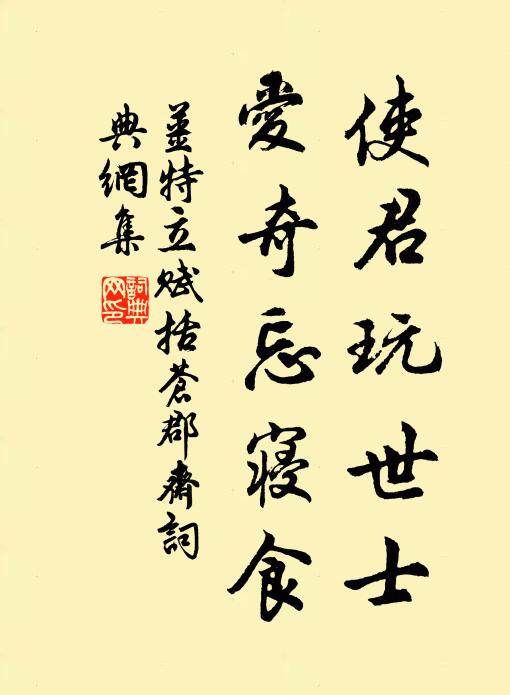 使君玩世士
愛奇忘寢食
姜特立賦括蒼郡齋詞
典網集
詞典
网印